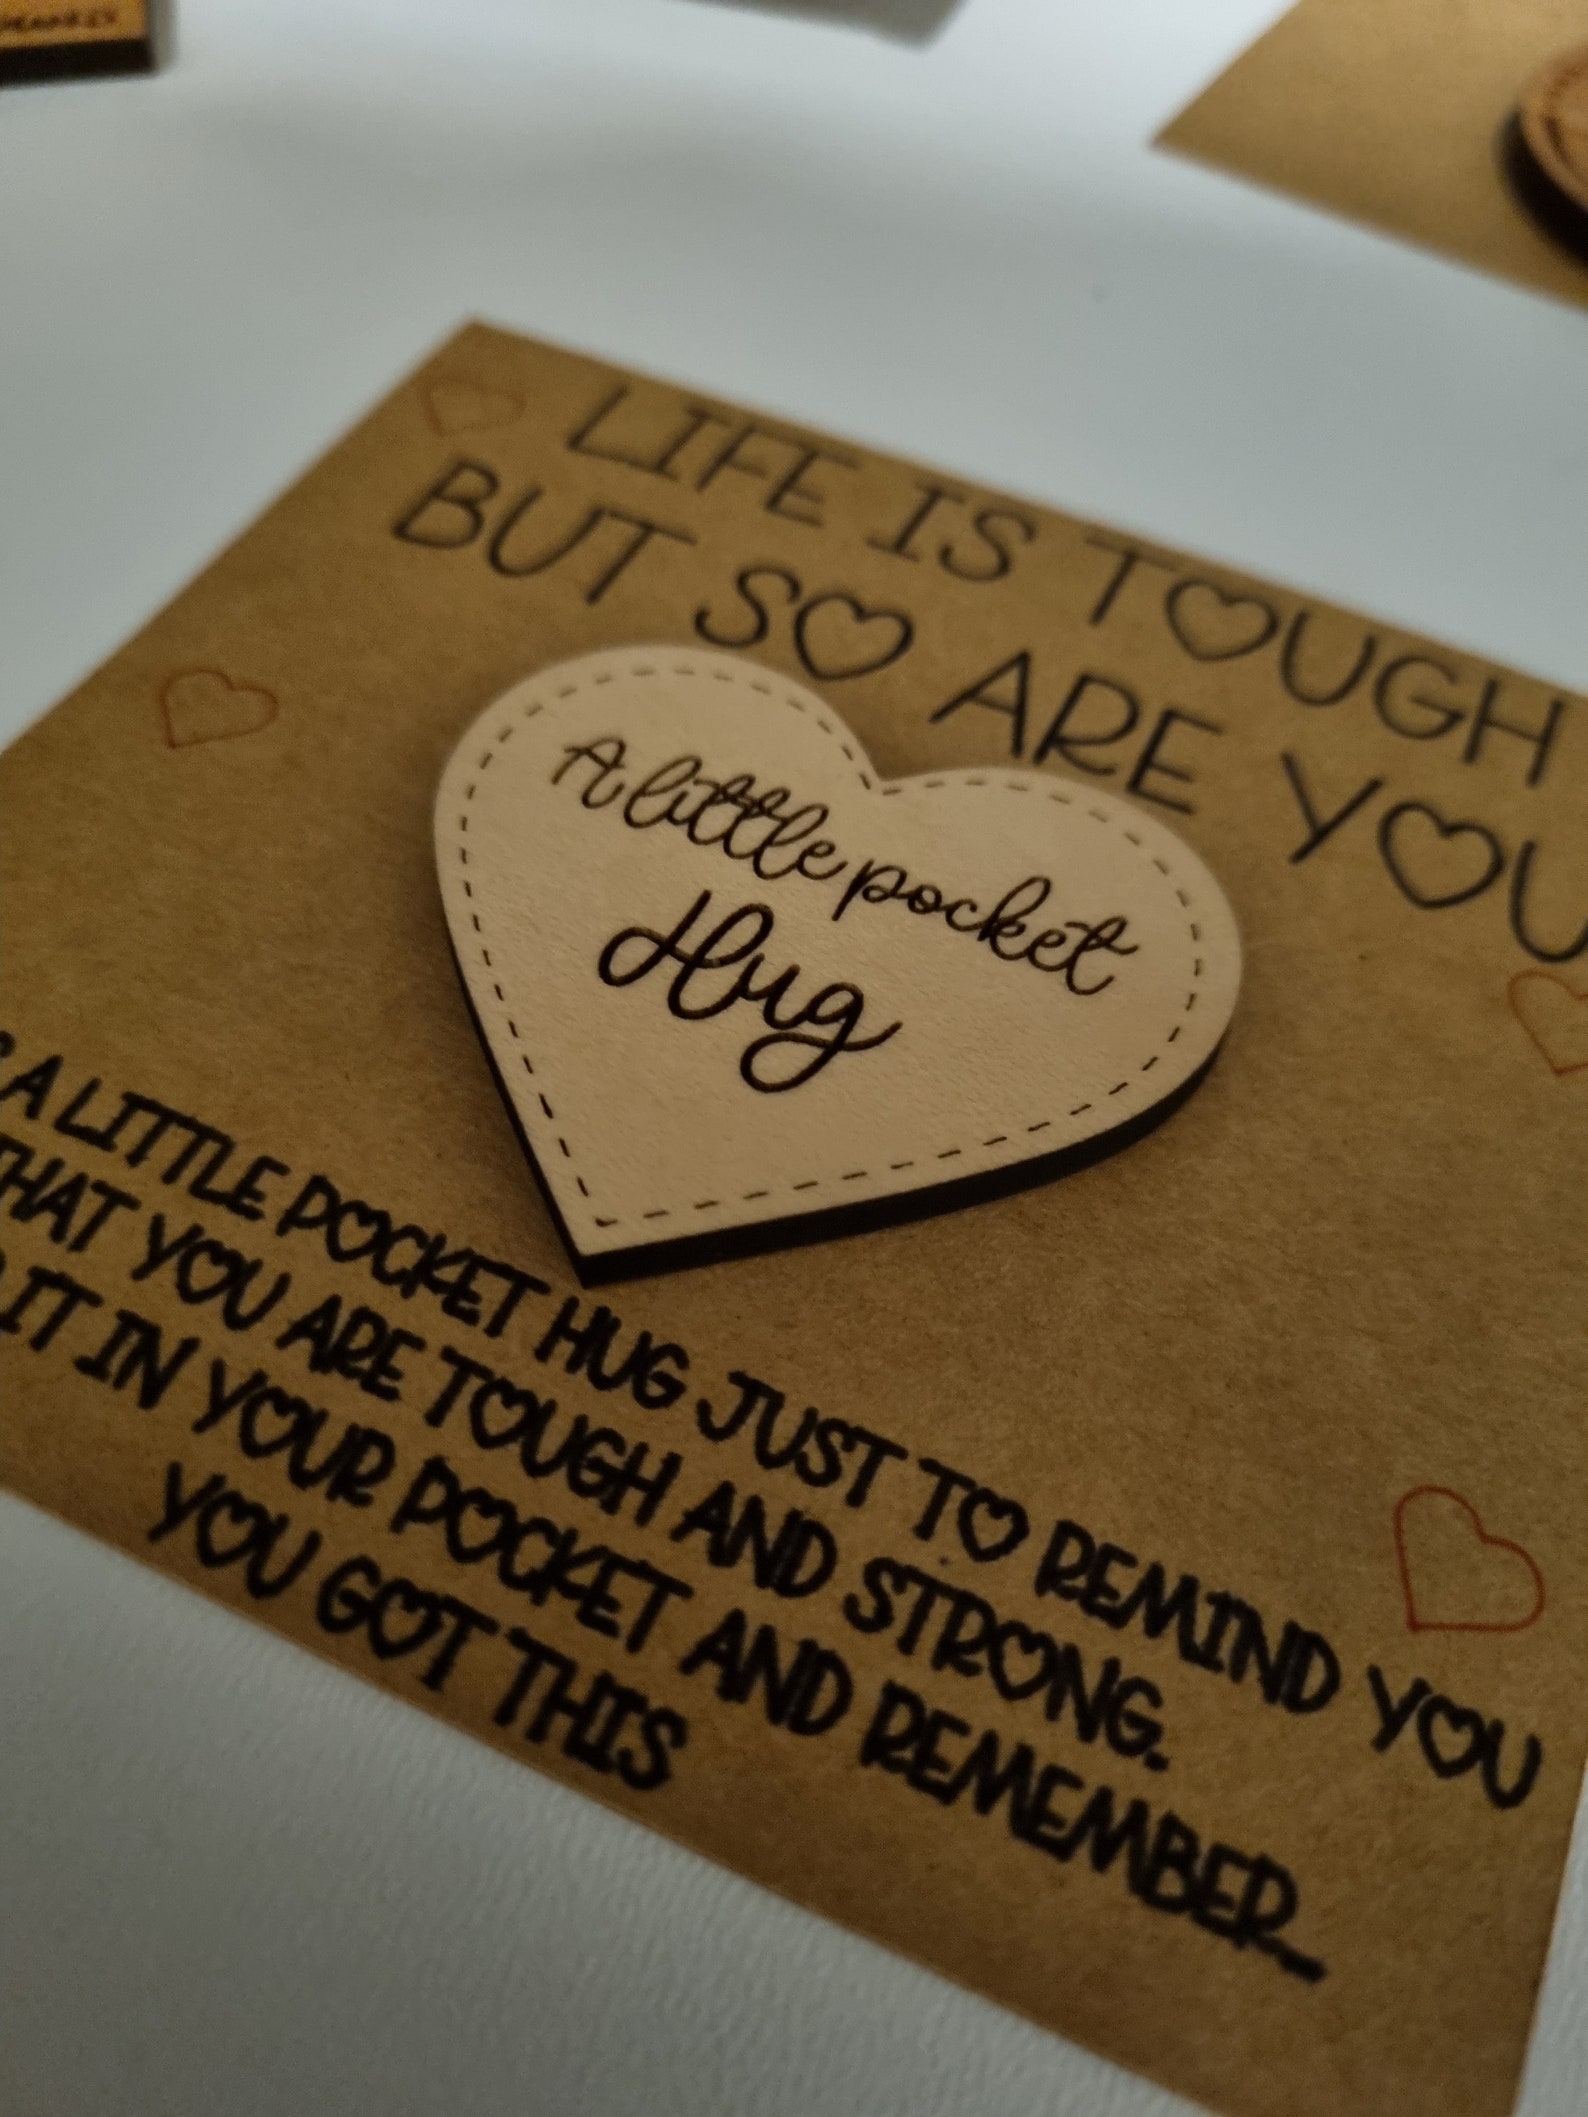 LIFE IS TOUGH
BUT SO ARE YOU
A little pocket
Hug
A LITTLE POCKET HUG JUST TO REMIND YOU
THAT YOU ARE TOUGH AND STRONG.
IT IN YOUR POCKET AND REMEMBER...
YOU GOT THIS